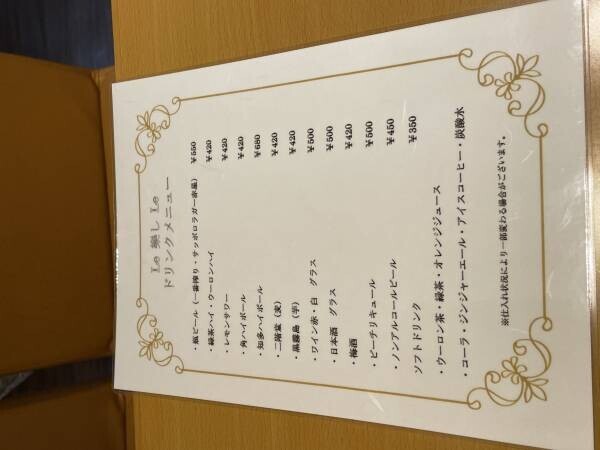 Le 樂し Le
ドリンクメニュー
・瓶ビール（一番搾り・サッポロラガー赤星） ¥550
・緑茶ハイ・ウーロンハイ ¥420
・レモンサワー ¥420
・角ハイボール ¥420
・知多ハイボール ¥680
・二階堂（麦） ¥420
・黒霧島（芋） ¥420
・ワイン赤・白 グラス ¥500
・日本酒 グラス ¥500
・梅酒 ¥420
・ピーチリキュール ¥500
・ノンアルコールビール ¥450
ソフトドリンク ¥350
・ウーロン茶・緑茶・オレンジジュース
・コーラ・ジンジャーエール・アイスコーヒー・炭酸水
※仕入れ状況により一部変わる場合がございます。